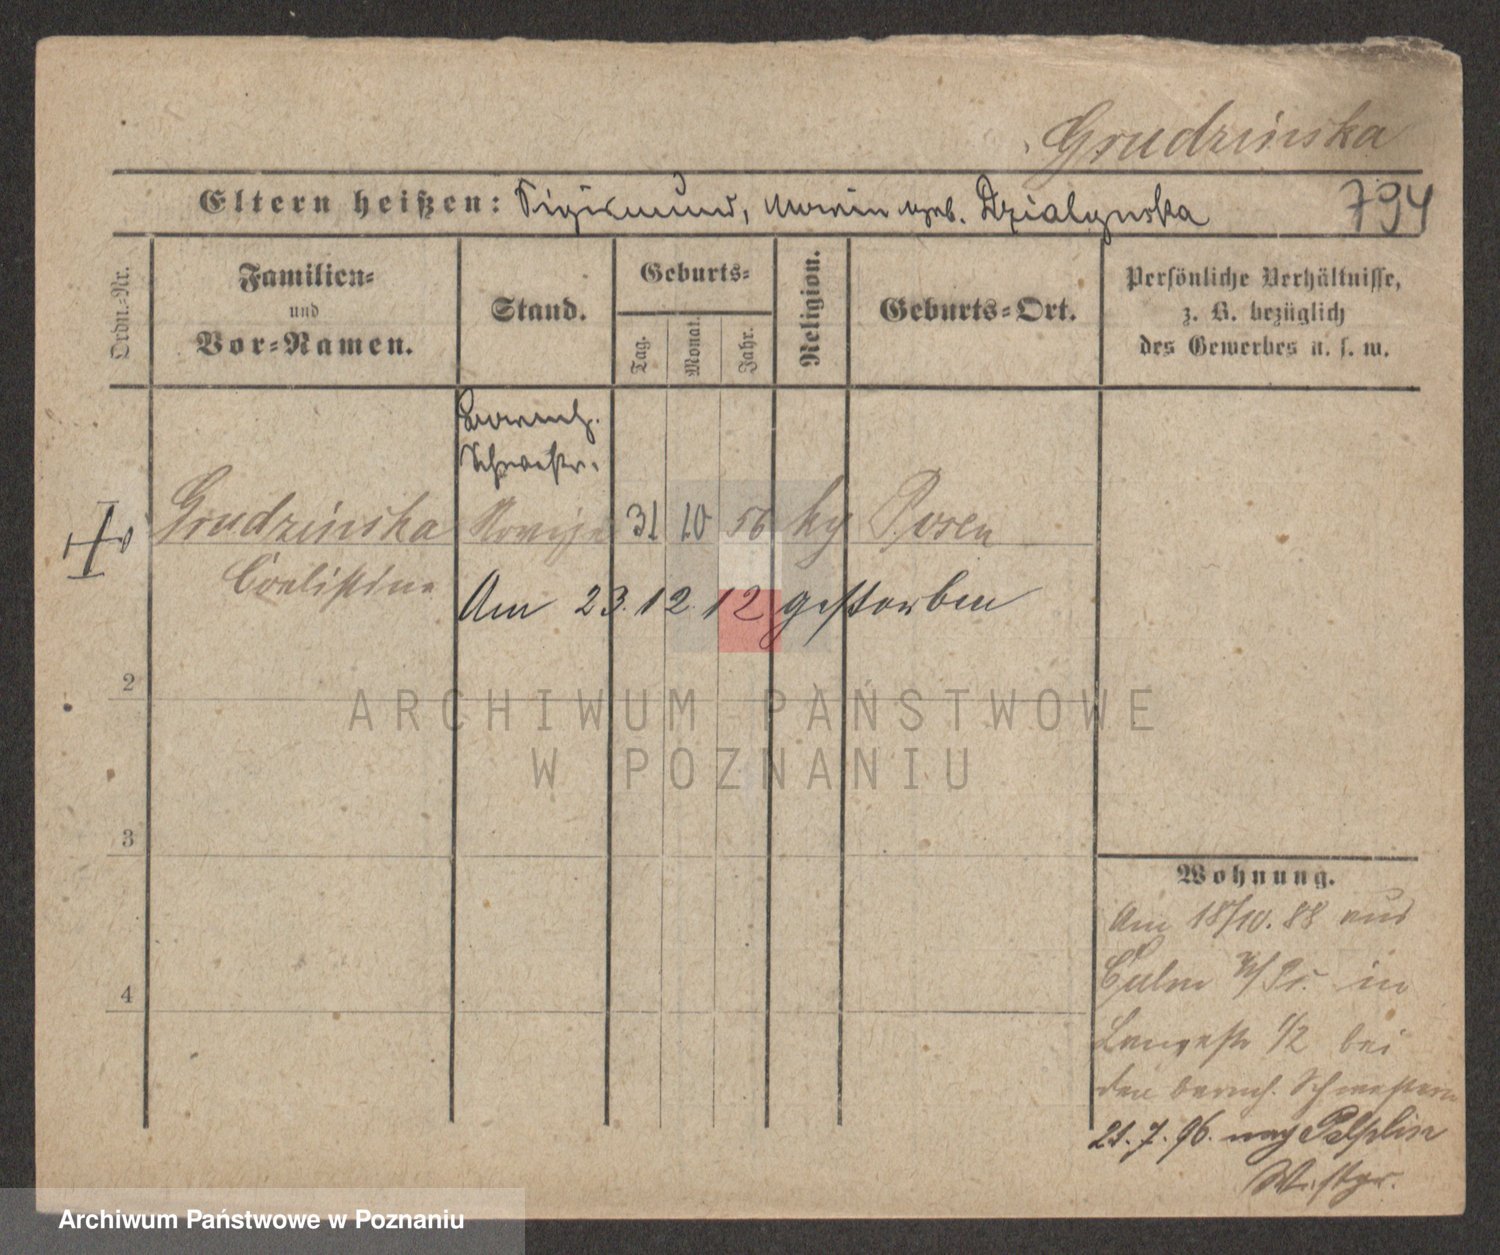 Grudzinska
Eltern heißen: Sigismund, Maria geb. Dzialynska
794
Ordn.-Nr.
Familien-
und
Vor-Namen.
Stand.
Geburts-
Tag.
Monat.
Jahr.
Religion.
Geburts-Ort.
Persönliche Verhältnisse,
z. B. bezüglich
des Gewerbes u. s. w.
barmh.
Schwester.
Grudzinska 31 10 56 Posen
Coelistine
Am 23.12.12 gestorben
2
3
4
Wohnung.
Am 18/10.88 aus
Culm W/Pr. in
Langestr 1/2 bei
den barmh. Schwestern
21.7.96. nach Pelplin
W.stpr.
ARCHIWUM PAŃSTWOWE
W POZNANIU
Archiwum Państwowe w Poznaniu